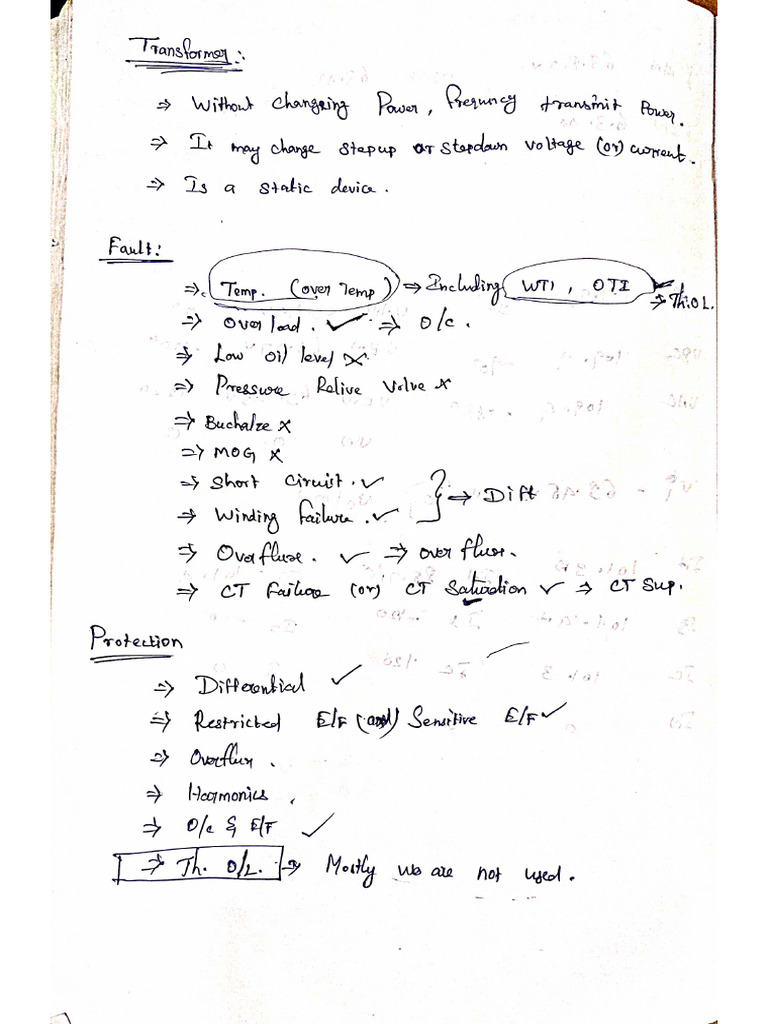 Transformer:
⇒ Without changeing Power, Frequncy transmit Power.
⇒ It may change stepup or stepdown voltage (or) current.
⇒ Is a static device.
Fault:
⇒ Temp. (over Temp) ⇒ Including WTI, OTI ⇒ Th.OL.
⇒ Over load. ✓ ⇒ O/c.
⇒ Low oil level ×
⇒ Pressure Relive Valve ×
⇒ Buchalze ×
⇒ MOG ×
⇒ Short Circuist. ✓
⇒ Winding failure. ✓ } → Diff
⇒ Overfluxe. ✓ ⇒ over fluxe.
⇒ CT Failure (or) CT Saturation ✓ ⇒ CT Sup.
Protection
⇒ Differential ✓
⇒ Restricted E/F (and) Sensitive E/F ✓
⇒ Overflux.
⇒ Harmonics.
⇒ O/c & E/F ✓
⇒ Th. O/L. ⇒ Mostly we are not used.